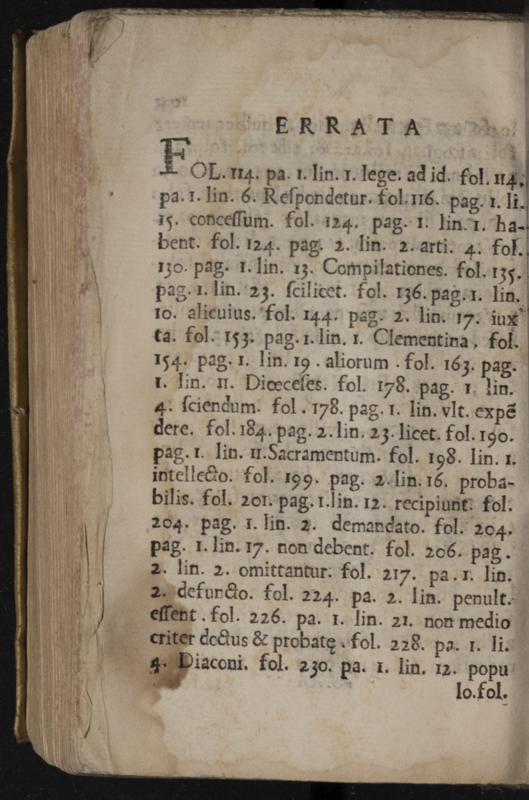 ERRATA
FOL. 114. pa. 1. lin. 1. lege. ad id. fol. 114.
pa. 1. lin. 6. Reſpondetur. fol. 116. pag. 1. li.
15. conceſſum. fol. 124. pag. 1. lin. 1. ha-
bent. fol. 124. pag. 2. lin. 2. arti. 4. fol.
130. pag. 1. lin. 13. Compilationes. fol. 135.
pag. 1. lin. 23. ſcilicet. fol. 136. pag. 1. lin.
10. alicuius. fol. 144. pag. 2. lin. 17. iux
ta. fol. 153. pag. 1. lin. 1. Clementina. fol.
154. pag. 1. lin. 19. aliorum. fol. 163. pag.
1. lin. 11. Diœceſes. fol. 178. pag. 1 lin.
4. ſciendum. fol. 178. pag. 1. lin. vlt. expē
dere. fol. 184. pag. 2. lin. 23. licet. fol. 190.
pag. 1. lin. 11. Sacramentum. fol. 198. lin. 1.
intellecto. fol. 199. pag. 2. lin. 16. proba-
bilis. fol. 201. pag. 1. lin. 12. recipiunt. fol.
204. pag. 1. lin. 2. demandato. fol. 204.
pag. 1. lin. 17. non debent. fol. 206. pag.
2. lin. 2. omittantur. fol. 217. pa. 1. lin.
2. defuncto. fol. 224. pa. 2. lin. penult.
eſſent. fol. 226. pa. 1. lin. 21. non medio
criter doctus & probatę. fol. 228. pa. 1. li.
4. Diaconi. fol. 230. pa. 1. lin. 12. popu
lo. fol.